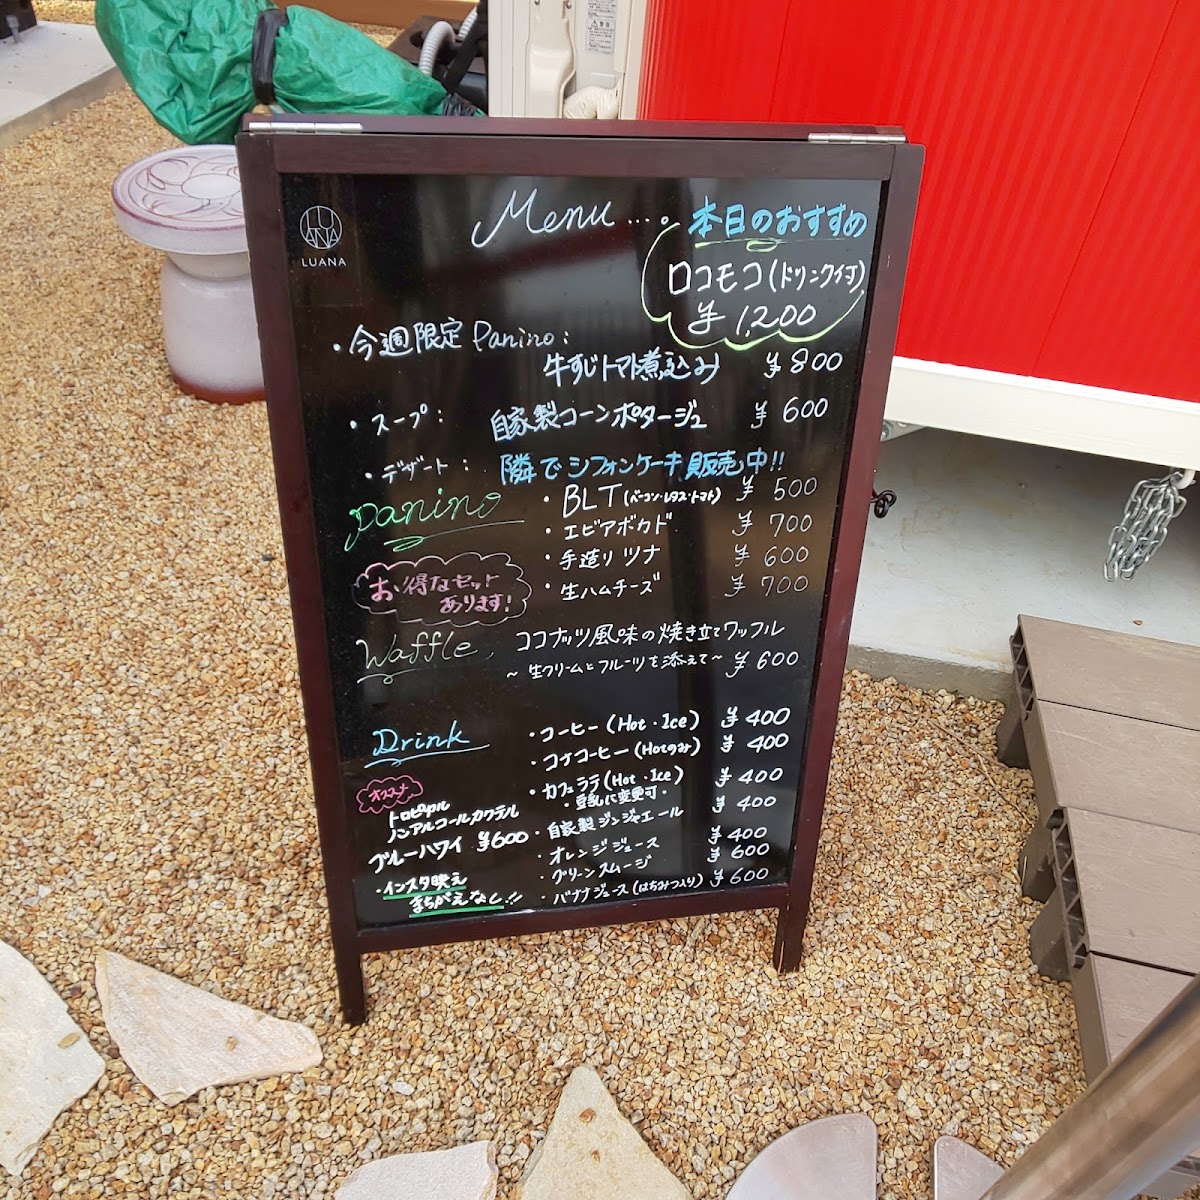 LUANA
Menu....
本日のおすすめ
ロコモコ(ドリンク付)
¥1,200
・今週限定 Panino:
牛すじトマト煮込み ¥800
・スープ: 自家製コーンポタージュ ¥600
・デザート: 隣でシフォンケーキ販売中!!
panino
・BLT(ベーコン・レタス・トマト) ¥500
・エビアボカド ¥700
・手造りツナ ¥600
・生ハムチーズ ¥700
お得なセット
あります!
Waffle, ココナッツ風味の焼き立てワッフル
~生クリームとフルーツを添えて~ ¥600
Drink
・コーヒー(Hot・Ice) ¥400
・コナコーヒー(Hotのみ) ¥400
・カフェラテ(Hot・Ice) ¥400
・豆乳に変更可・
・自家製ジンジャエール ¥400
・オレンジジュース ¥400
・グリーンスムージ ¥600
・バナナジュース(はちみつ入り) ¥600
オススメ
トロピカル
ノンアルコールカクテル
ブルーハワイ ¥600
・インスタ映え
まちがえなし!!